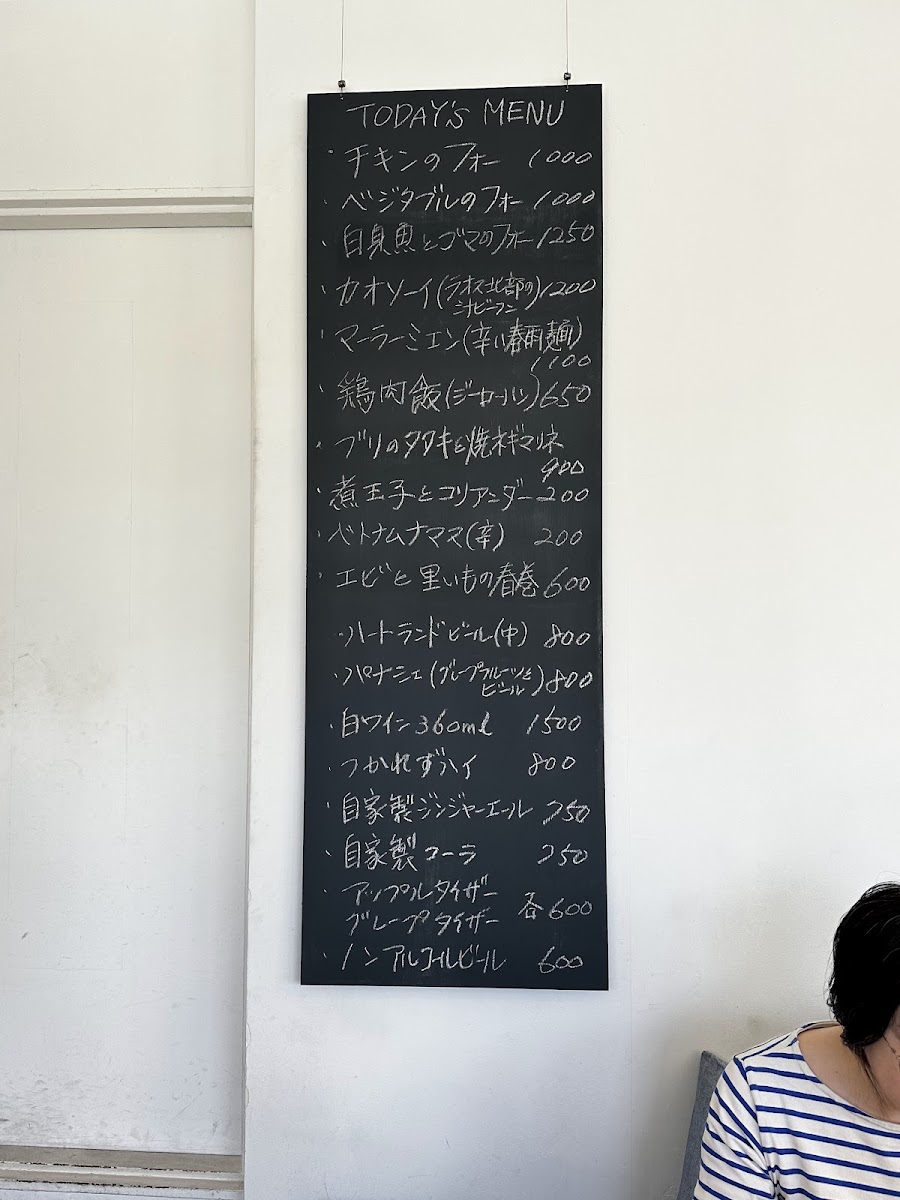 TODAY's MENU
・チキンのフォー 1000
・ベジタブルのフォー 1000
・白身魚とゴマのフォー 1250
・カオソーイ(ラオス北部の
シナビーフン) 1200
・マーラーミエン(辛い春雨麺)
1100
・鶏肉飯(ジーローハン) 650
・ブリのタタキと焼ネギマリネ
900
・煮玉子とコリアンダー 200
・ベトナムナマス(辛) 200
・エビと里いもの春巻 600
・ハートランドビール(中) 800
・パナシェ(グレープフルーツと
ビール) 800
・白ワイン360ml 1500
・つかれずハイ 800
・自家製ジンジャーエール 750
・自家製コーラ 750
・アップルタイザー
グレープタイザー 各600
・ノンアルコールビール 600